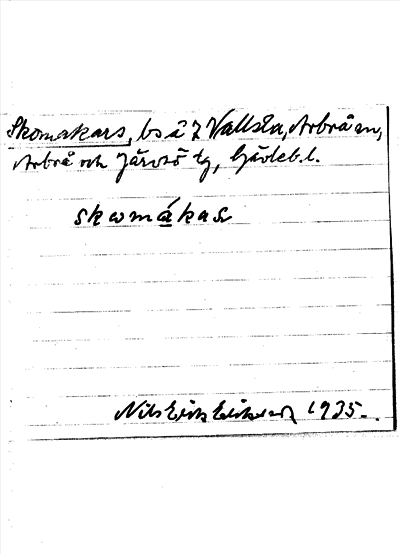 Skomakars, bs å 7 Vallsta, Arbrå sn,
Arbrå och Järvsö tg, Gävleb. l.
skomákas
Nils Erik Eriksson 1935.